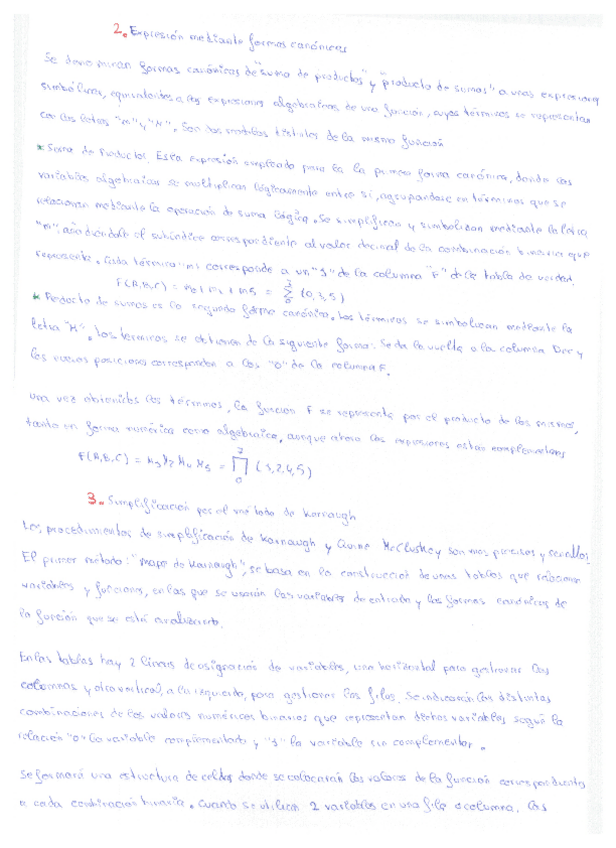 2. Expresión mediante formas canónicas
Se denominan formas canónicas de "suma de productos" y "producto de sumas" a unas expresiones
simbólicas, equivalentes a las expresiones algebraicas de una función, cuyos términos se representan
con las letras "m" y "M". Son dos modelos distintos de la misma función
* Suma de Productos. Esta expresión empleada para la primera forma canónica, donde las
variables algebraicas se multiplican lógicamente entre sí, agrupandose en términos que se
relacionan mediante la operación de suma lógica. Se simplifican y simbolizan mediante la letra
"m", añadiéndole el subíndice correspondiente al valor decimal de la combinación binaria que
represente. Cada término "m" corresponde a un "1" de la columna "F" de la tabla de verdad.
F(A,B,C) = m0 + m3 + m5 = Σ (0,3,5)
* Producto de sumas es la segunda forma canónica. Los términos se simbolizan mediante la
letra "M". Los terminos se obtienen de la siguiente forma: Se da la vuelta a la columna Dec y
las nuevas posiciones corresponden a los "0" de la columna F.
Una vez obtenidos los términos, la función F se representa por el producto de los mismos,
tanto en forma numérica como algebraica, aunque ahora las expresiones están complementadas
F(A,B,C) = M3 M2 M4 M5 = ∏ (3,2,4,5)
3. Simplificación por el método de Karnaugh
Los procedimientos de simplificación de Karnaugh y Quine McCluskey son mas precisos y sencillos
El primer método: "mapa de Karnaugh", se basa en la construcción de unas tablas que relacionan
variables y funciones, en las que se usarán las variables de entrada y las formas canónicas de
la función que se está analizando.
En las tablas hay 2 líneas de asignación de variables, una horizontal para gestionar las
columnas y otra vertical, a la izquierda, para gestionar las filas. Se indicarán las distintas
combinaciones de los valores numéricos binarios que representan dichas variables según la
relación "0" la variable complementada y "1" la variable sin complementar.
Se formará una estructura de celdas donde se colocarán los valores de la función correspondientes
a cada combinación binaria. Cuando se utilizan 2 variables en una fila o columna, las